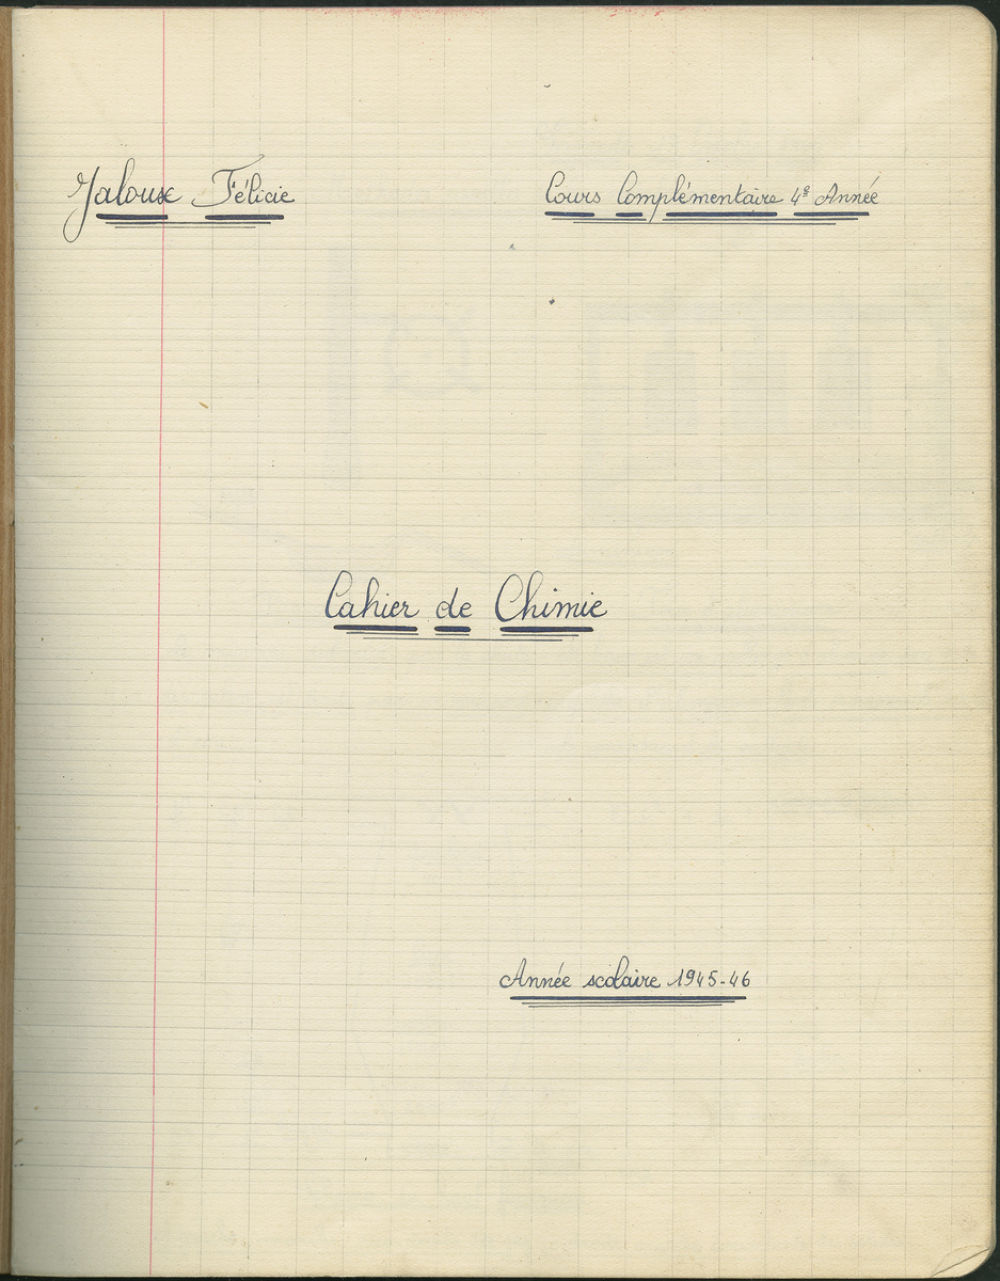 Jaloux Félicie
Cours Complémentaire 4e Année
Cahier de Chimie
Année scolaire 1945-46